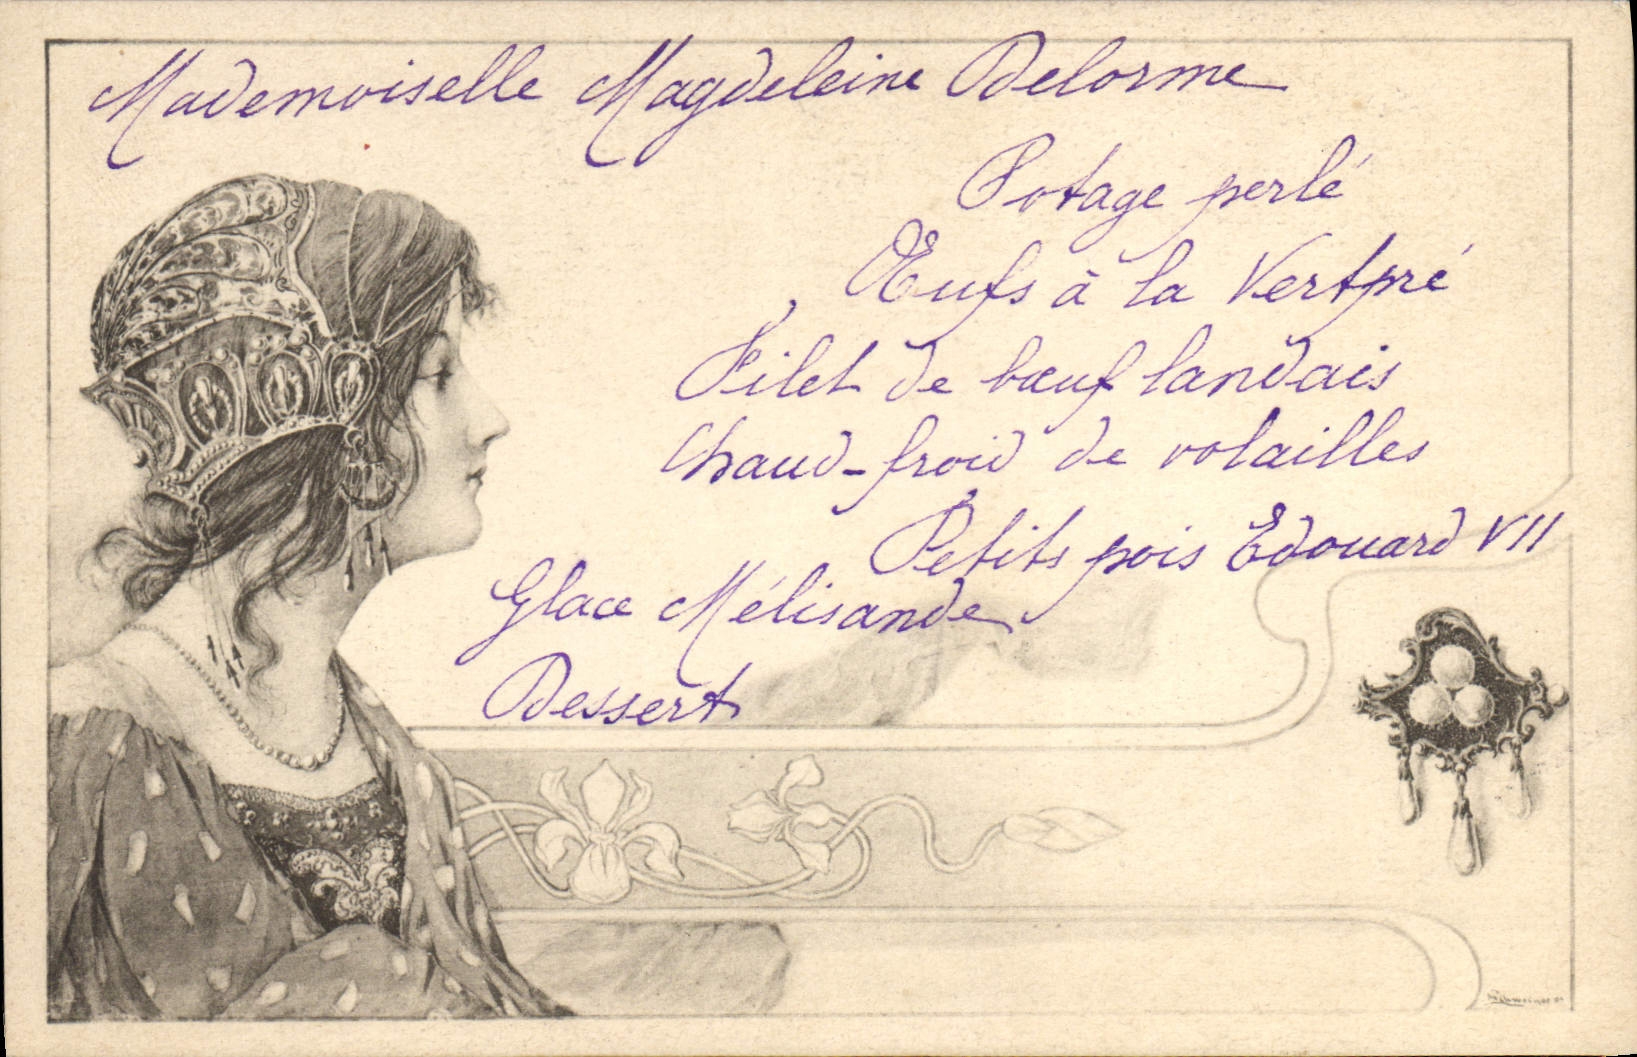 Mademoiselle Magdeleine Delorme
Potage perlé
Œufs à la Vertpré
Filet de bœuf landais
Chaud-froid de volailles
Petits pois Edouard VII
Glace Mélisande
Dessert